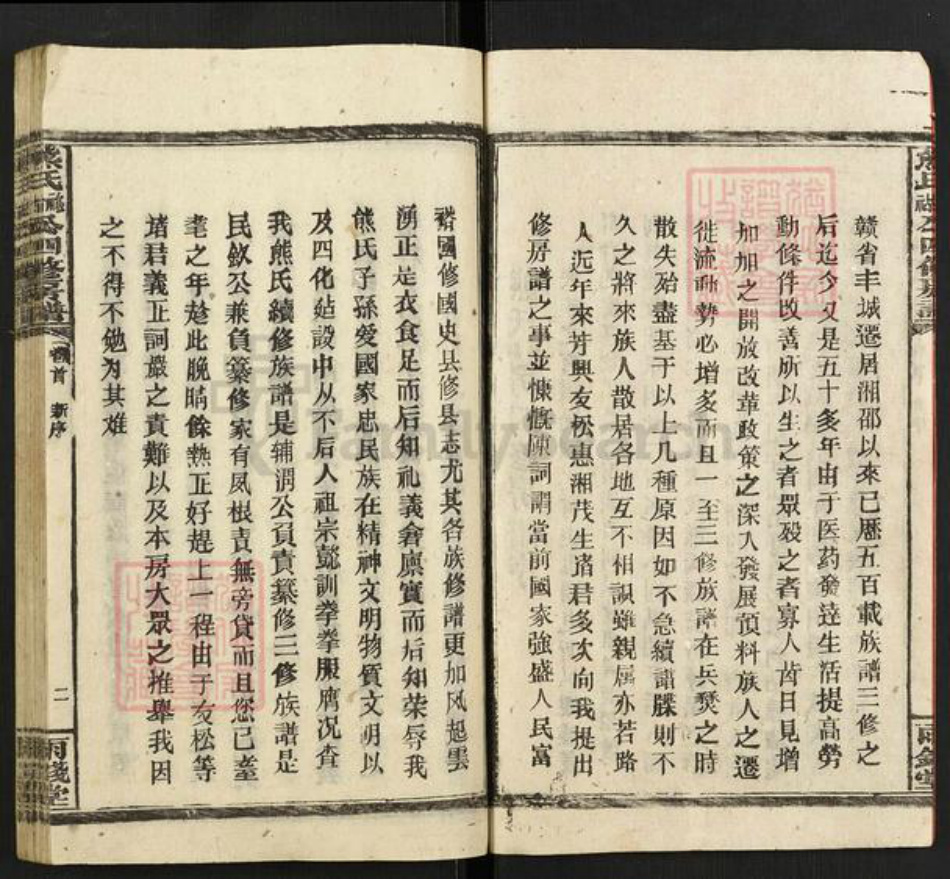 贛省丰城遷居湘邵以來已歷五百載族譜三修之
后迄今又是五十多年由于医药發達生活提高勞
動條件改善所以生之者眾殁之者寡人齿日見增
加加之開放改革政策之深入發展預料族人之遷
徙流動势必增多而且一至三修族譜在兵燹之時
散失殆盡基于以上几種原因如不急續譜牒則不
久之將來族人散居各地互不相識雖親属亦若路
人近年來芳興友松惠湘茂生诸君多次向我提出
修房譜之事並慷慨陳詞謂當前國家強盛人民富
裕國修國史县修县志尤其各族修譜更加风起雲
湧正是衣食足而后知礼義倉廪實而后知荣辱我
熊氏子孫愛國家忠民族在精神文明物質文明以
及四化建設中从不后人祖宗懿訓拳拳服膺况查
我熊氏續修族譜是辅潤公負責纂修三修族譜是
民欽公兼負纂修家有夙根責無旁貸而且您已耋
耄之年趁此晚晴餘熱正好趕上一程由于友松等
诸君義正詞嚴之責難以及本房大眾之推舉我因
之不得不勉为其难
熊氏 公四修房譜
卷首
新序
二
雨錢堂